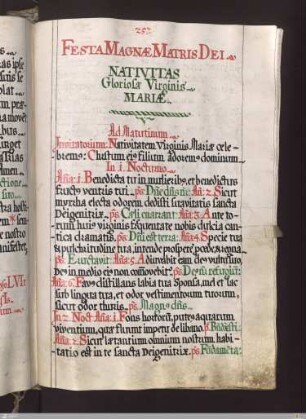 257
FESTA MAGNÆ MATRIS DEI
NATIVITAS
Gloriosæ Virginis
MARIÆ
Ad Matutinum
Invitatorium: Nativitatem Virginis Mariæ cele-
bremus: Christum ejus filium adoremus dominum
In i. Nocturno
Aña: i. Benedicta tu in mulieribus, et benedictus
fructus ventris tui. ps
Aña: 2. Sicut
myrrha electa odorem dedisti suavitatis sancta
Deigenitrix. ps. Cæli enarrant. Aña: 3. Ante to-
rum hujus virginis frequentate nobis dulcia can-
tica dramatis. ps. Aña: 4. Specie tua
et pulchritudine tua intende prospere procede, et regna
ps. Eructavit. Aña: 5. Adjuvabit eam deus vultu suo
deus in medio ejus non commovebitur. ps. Deus refugiū:
Aña: 6. Favus distillans labia tua sponsa, mel et lac
sub lingua tua, et odor vestimentorum tuorum,
sicut odor thuris. ps. Magnus dñs.
In 2. Noct: Aña: i. Fons hortorū, puteus aquarum
viventium, quæ fluunt impetu de libano. ps.
Aña: 2. Sicut lætantium omnium nostrum habi-
tatio est in te sancta Deigenitrix. ps. Fundamēta: